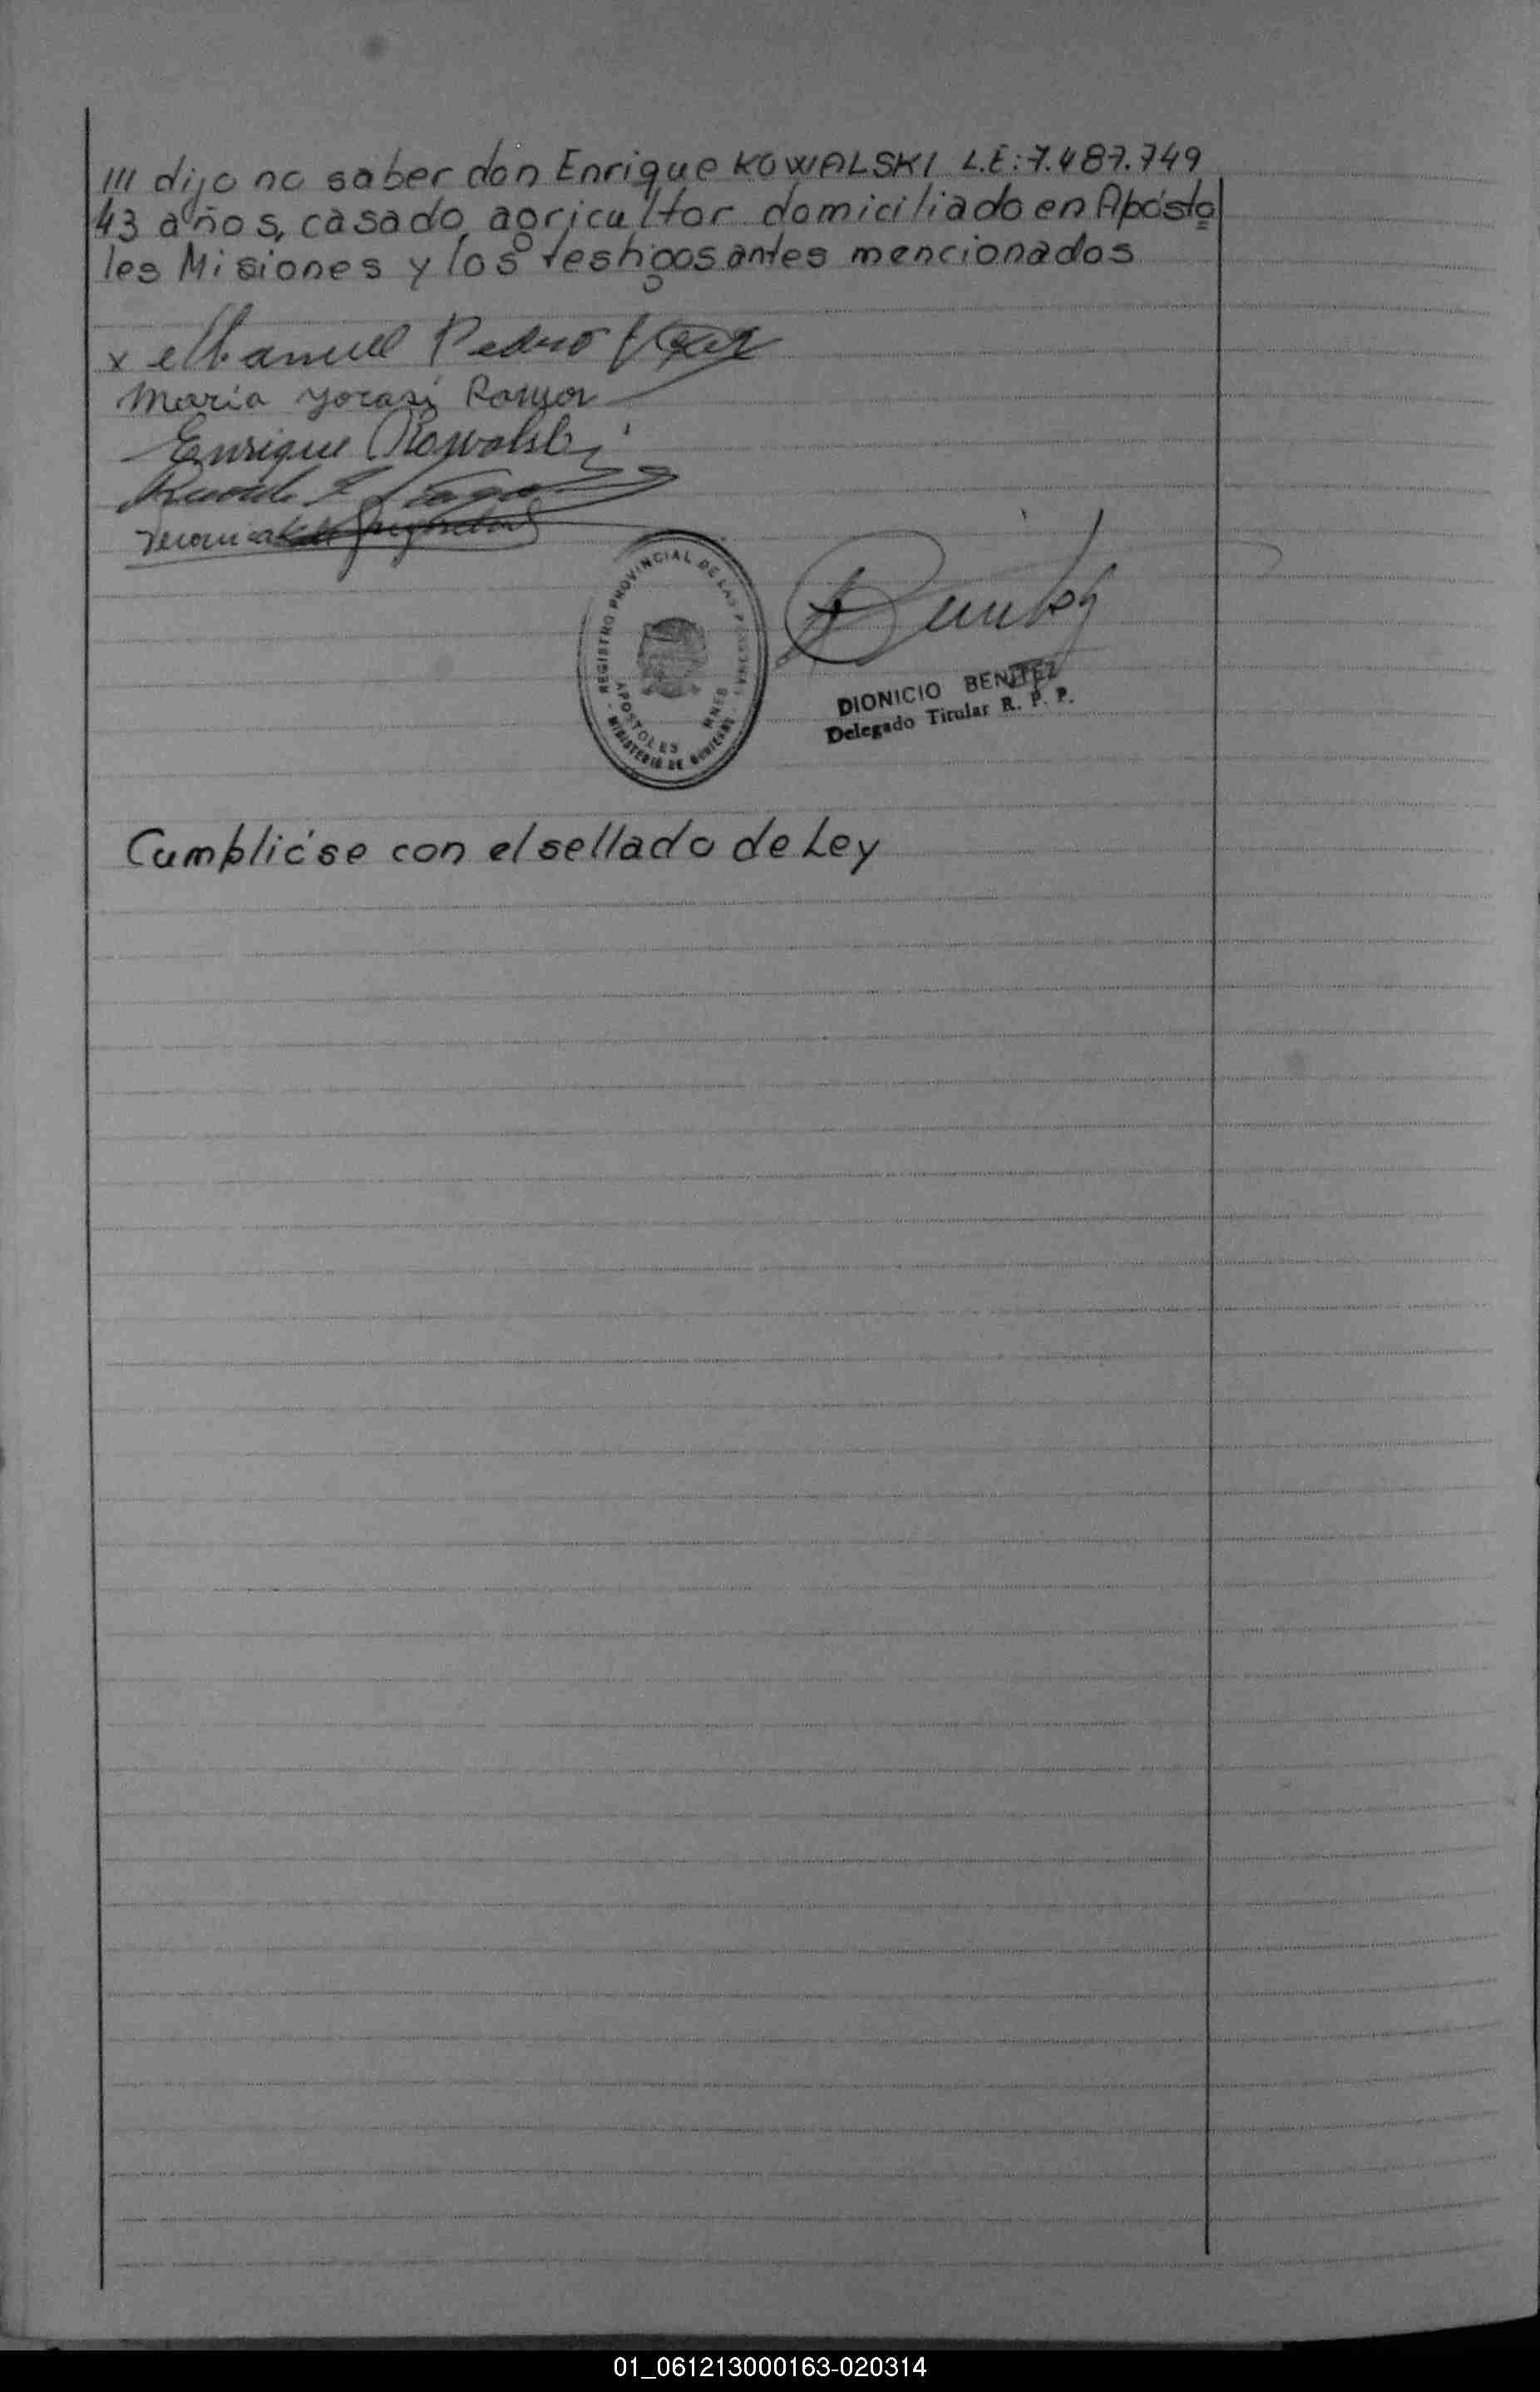 /// dijo no saber don Enrique KOWALSKI L.E:7.487.749
43 años, casado, agricultor domiciliado en Aposto
les Misiones y los testigos antes mencionados
x Manuel Pedro
Maria Ramon
Enrique Kowalski
Veronica
REGISTRO PROVINCIAL DE LAS PERSONAS
APOSTOLES MNES
MINISTERIO DE GOBIERNO
DIONICIO BENITEZ
Delegado Titular R. P. P.
Cumplióse con el sellado de Ley
01_061213000163-020314